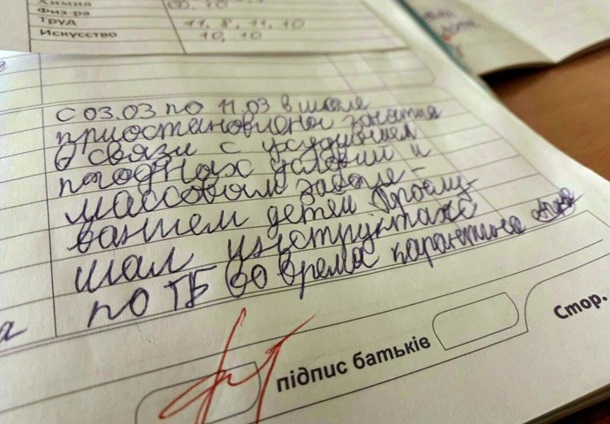 Химия
Физ-ра
Труд 11, 8, 11, 10
Искусство 10, 10
С 03.03 по 11.03 в школе
приостановлены занятия
в связи с ухудшением
погодных условий и
массовым заболе-
ванием детей. Прослу-
шал инструктаж
по ТБ во время карантина
підпис батьків
Стор.